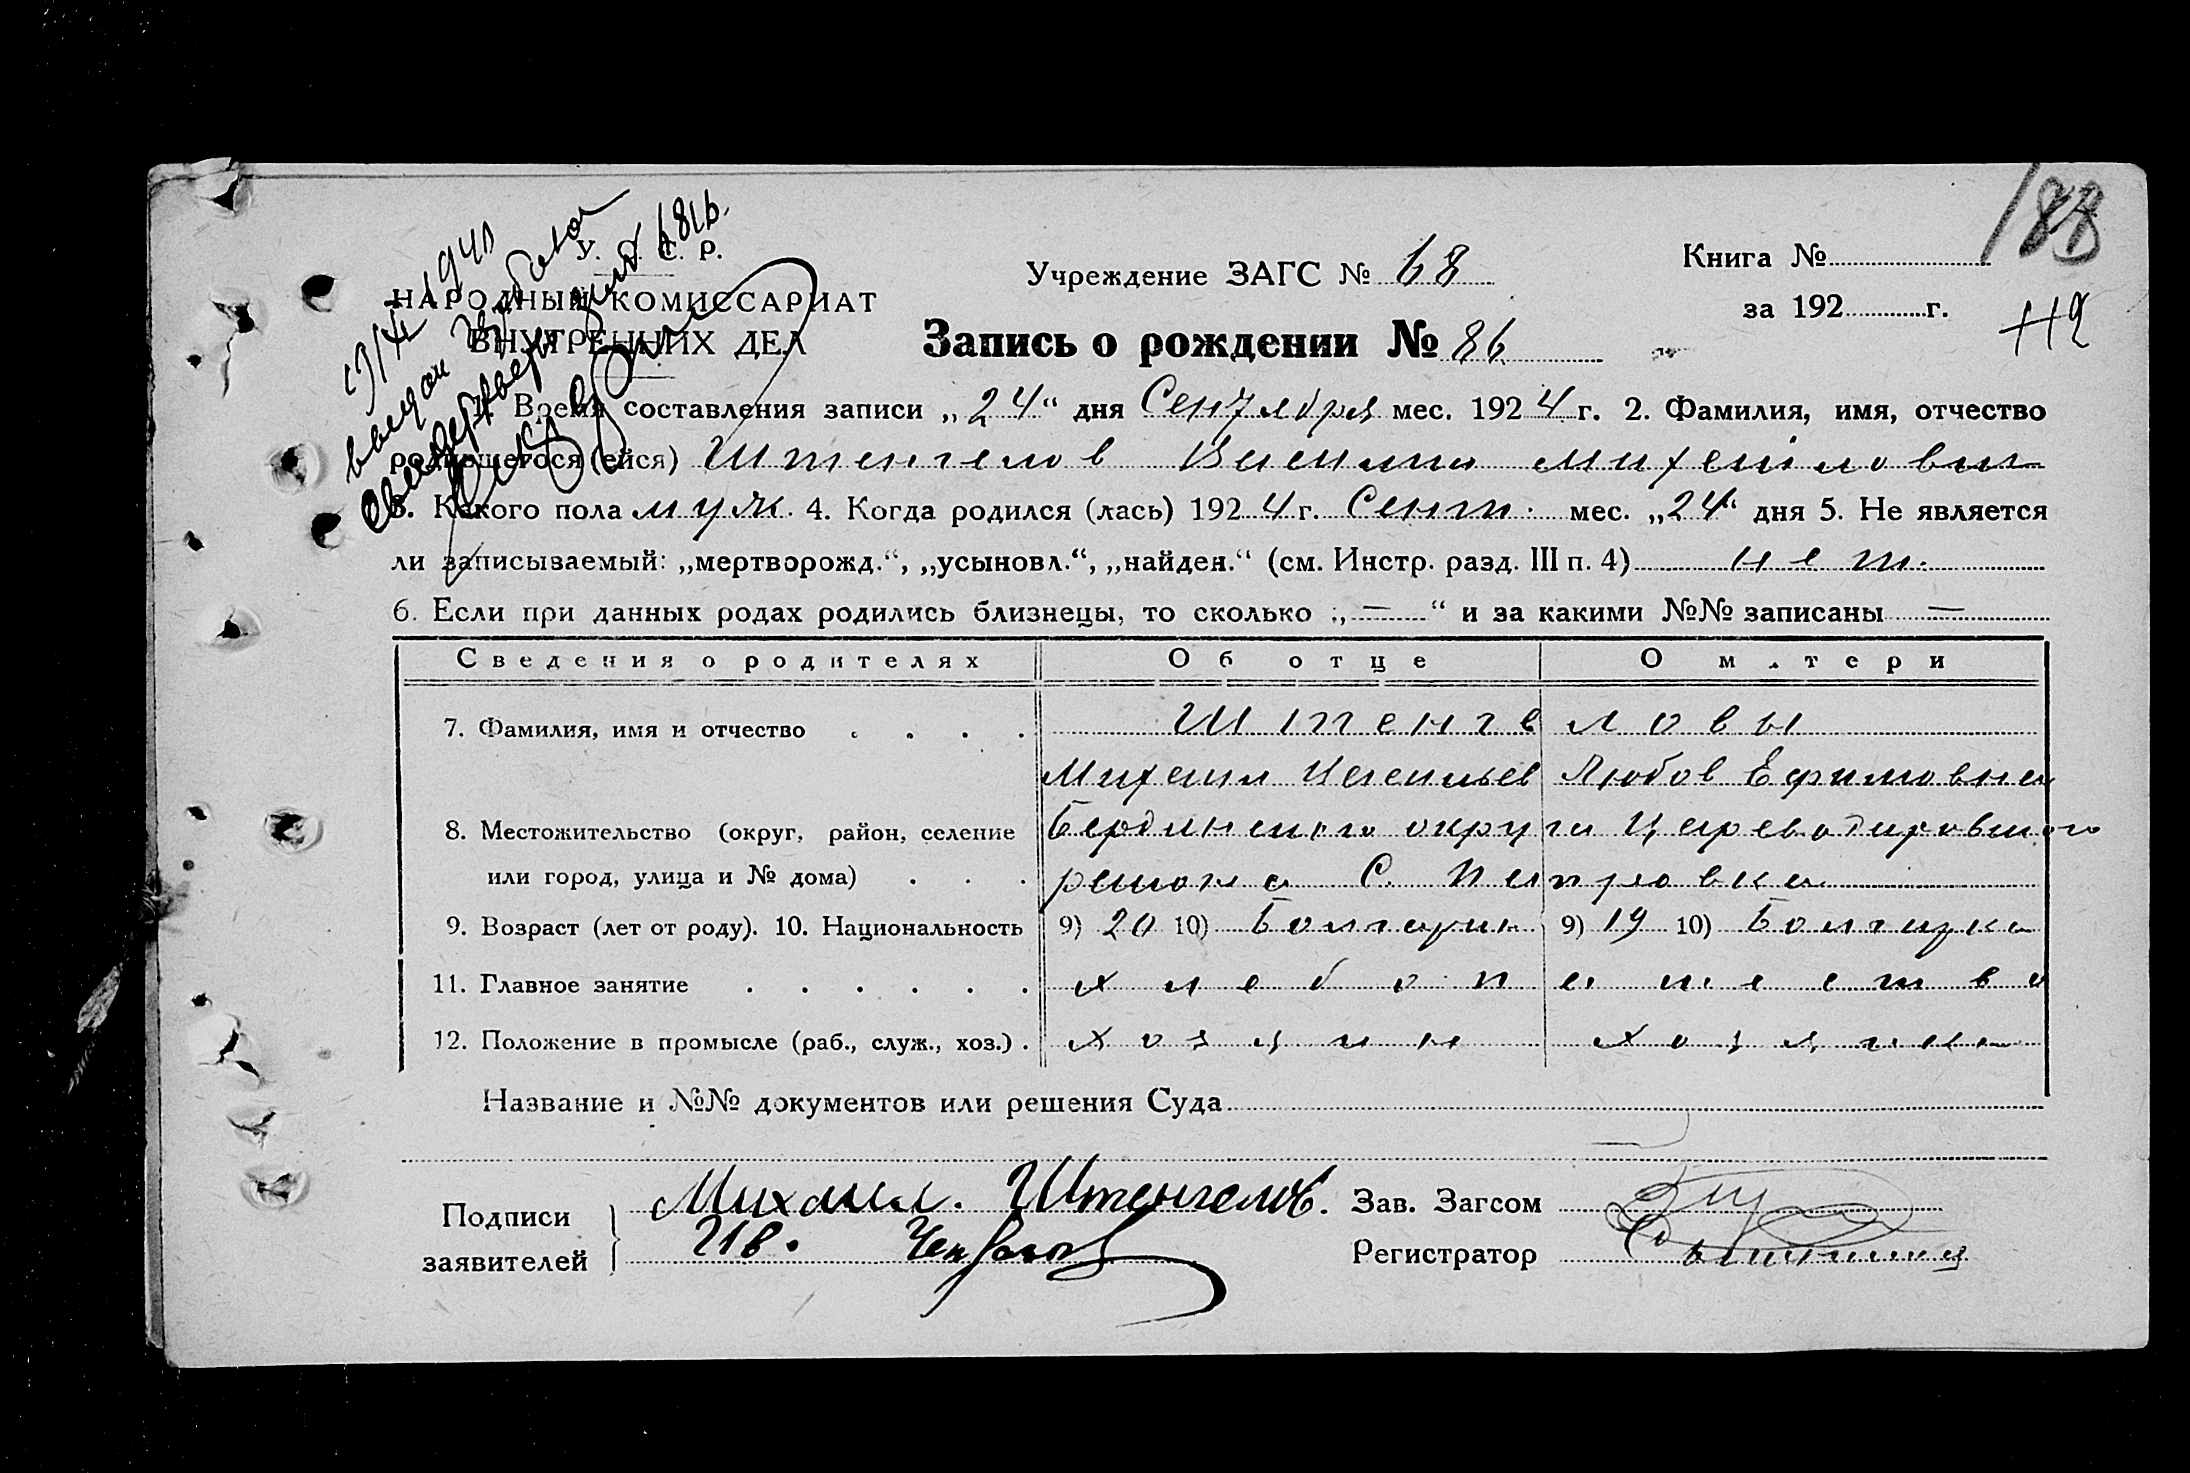 188
У. С. С. Р.
Учреждение ЗАГС № 68
Книга №
НАРОДНЫЙ КОМИССАРИАТ
за 192 г.
ВНУТРЕННИХ ДЕЛ
Запись о рождении № 86
1. Время составления записи „24“ дня Сентября мес. 1924 г. 2. Фамилия, имя, отчество
родившегося (ейся) Штенгелов Василий Михайлович
3. Какого пола муж. 4. Когда родился (лась) 1924 г. Сент. мес. „24“ дня 5. Не является
ли записываемый: „мертворожд.“, „усыновл.“, „найден.“ (см. Инстр. разд. III п. 4) нет.
6. Если при данных родах родились близнецы, то сколько „—“ и за какими №№ записаны —
Сведения о родителях Об отце О матери
7. Фамилия, имя и отчество . . . . Штенгеловы
Михаил Любов Ефимовна
8. Местожительство (округ, район, селение Бердянского округа
или город, улица и № дома) . . . района С.
9. Возраст (лет от роду). 10. Национальность 9) 20 10) Болгарин 9) 19 10) Болгарка
11. Главное занятие . . . . . . хлебопашество
12. Положение в промысле (раб., служ., хоз.) . хозяин хозяйка
Название и №№ документов или решения Суда
Подписи заявителей Михаил. Штенгелов. Зав. Загсом
Ив. Регистратор